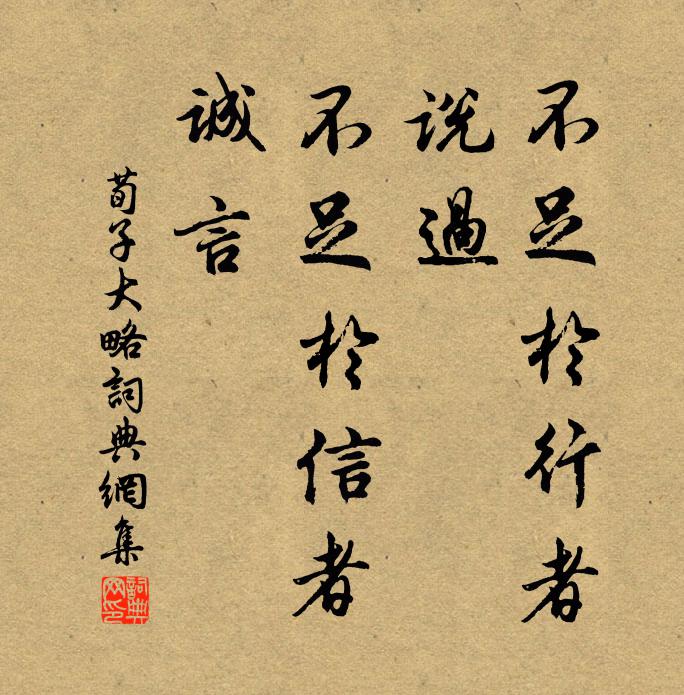 不足於行者
說過
不足於信者
誠言
荀子大略詞典網集
詞典网印